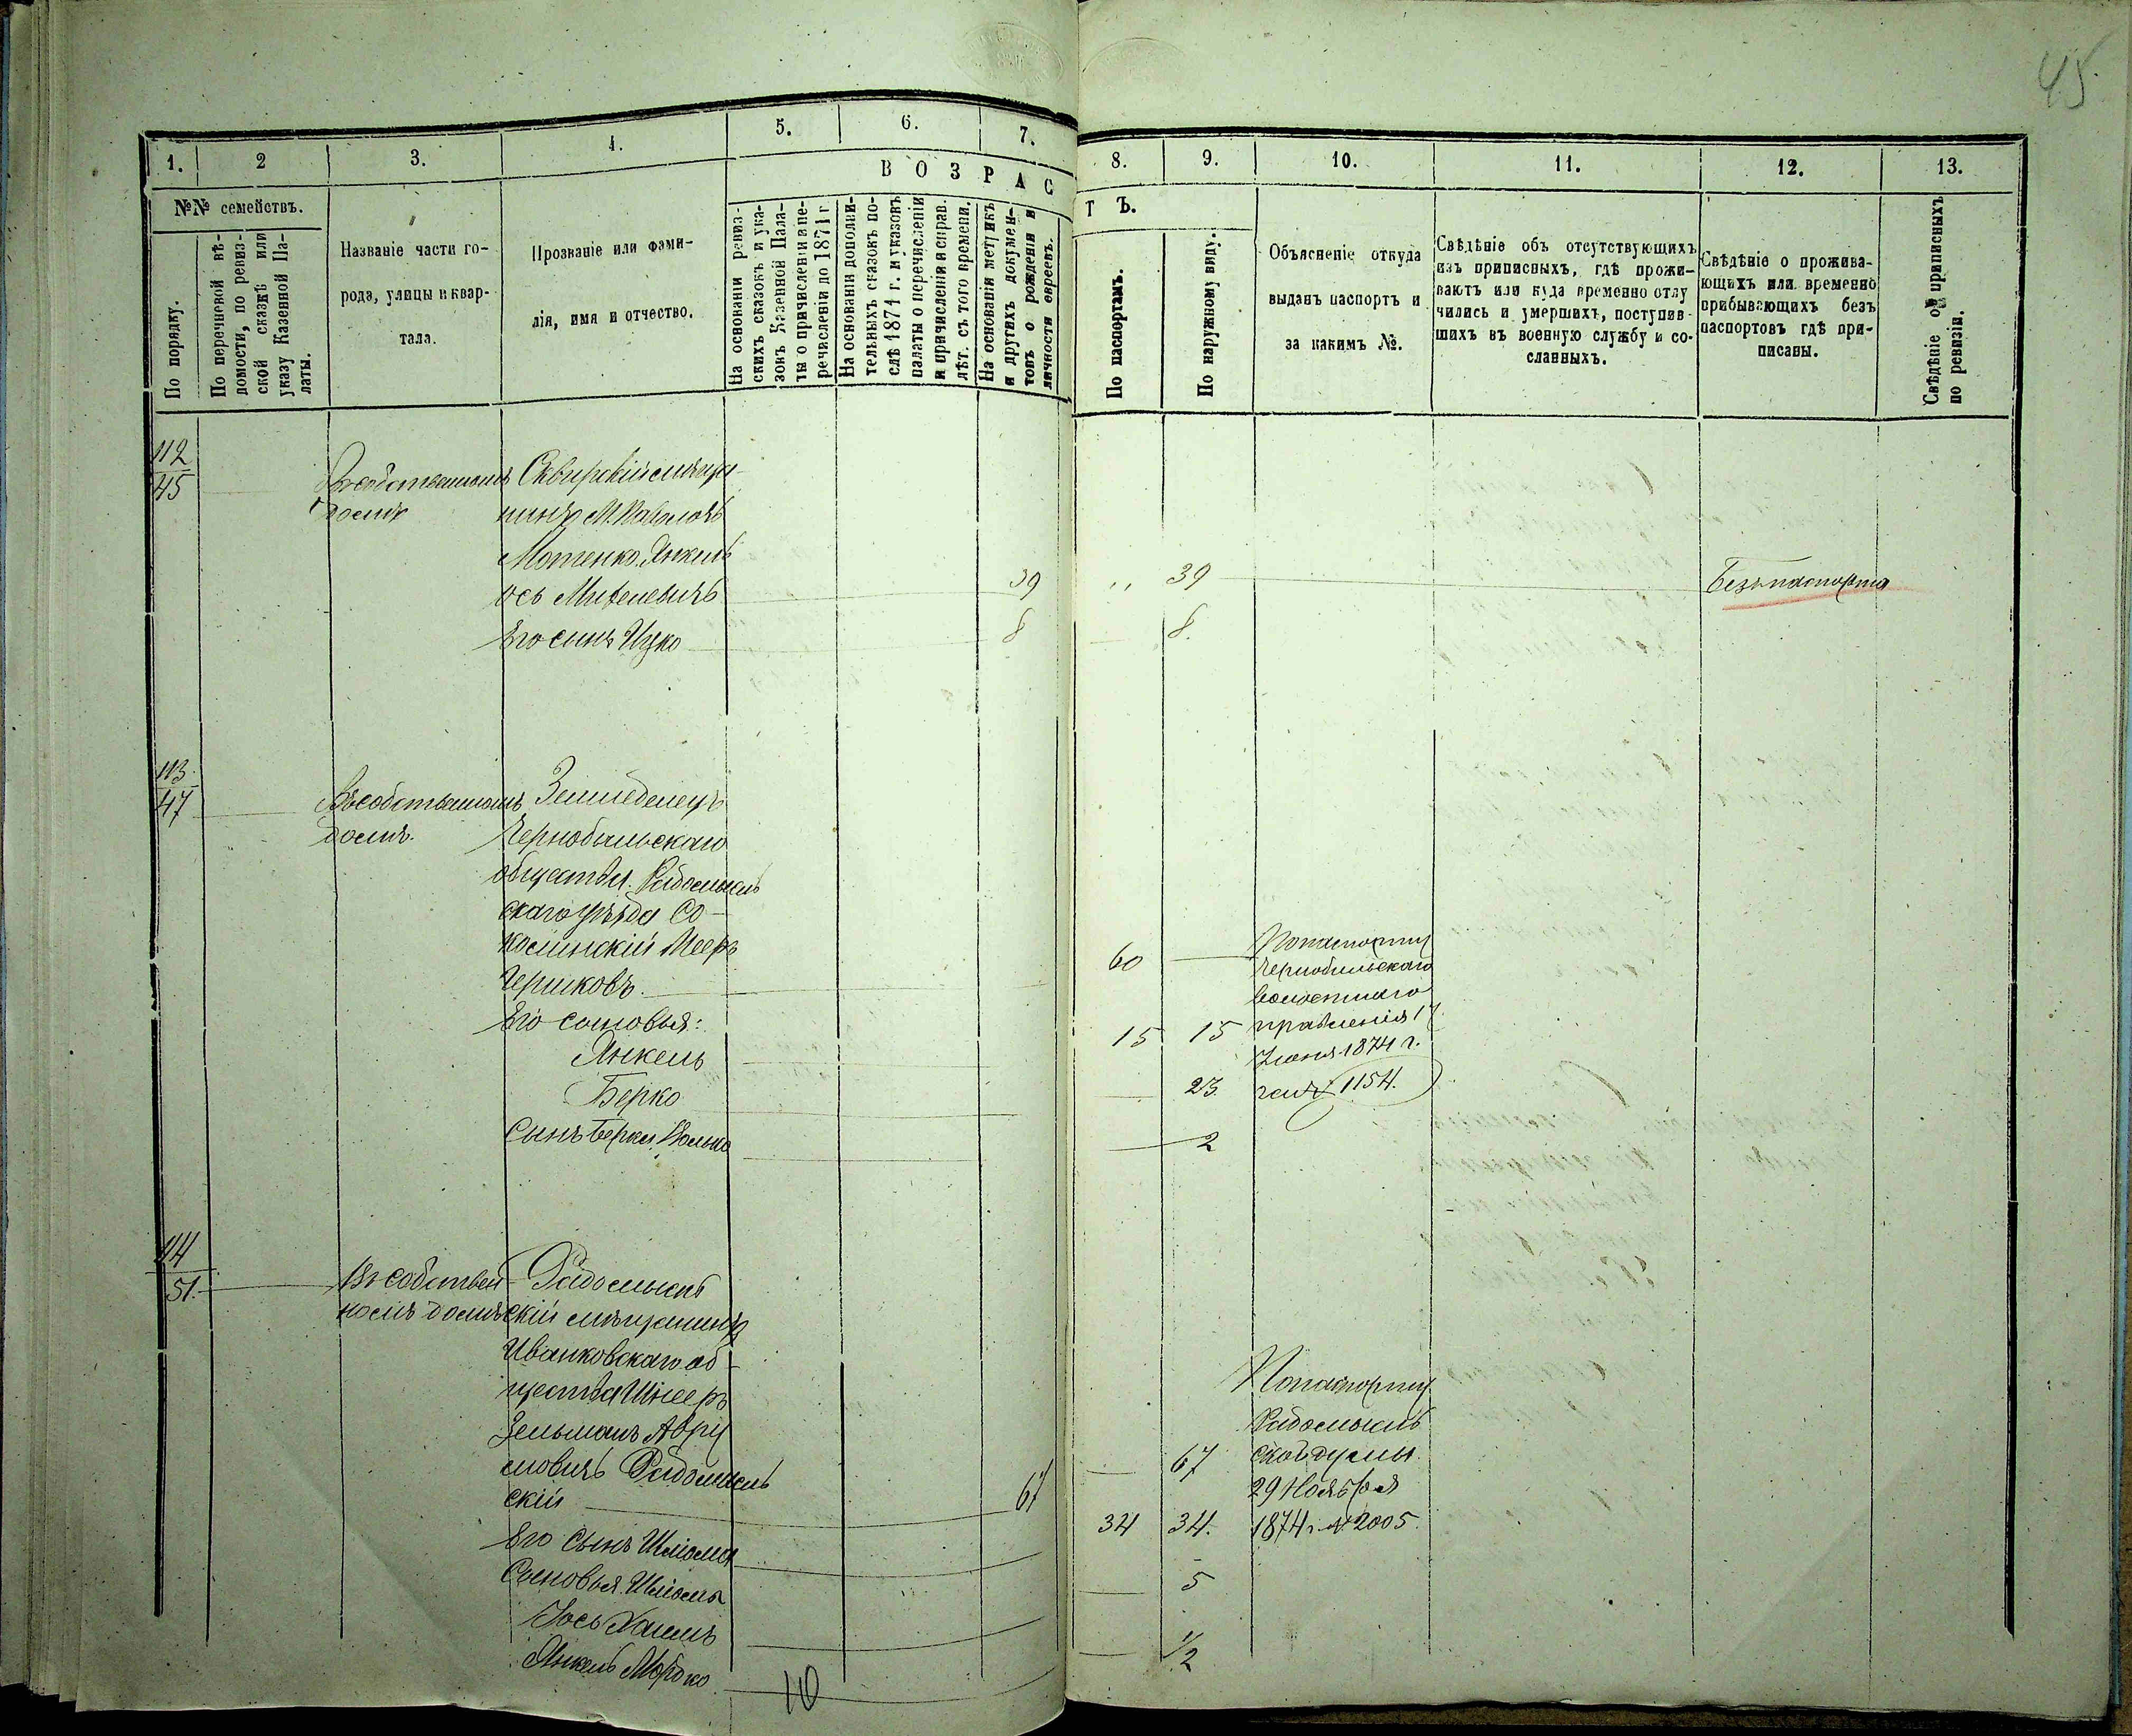 45.
1.
2
3.
4.
5.
6.
7.
ВОЗРАС
№№ семействъ.
По порядку.
По перечневой вѣ-
домости, по ревиз-
ской сказкѣ или
указу Казенной Па-
латы.
Названіе части го-
рода, улицы и квар-
тала.
Прозваніе или фами-
лія, имя и отчество.
На основаніи ревиз-
скихъ сказокъ и ука-
зокъ Казенной Пала-
ты о причисленіи и пе-
речисленіи до 1871 г.
На основаніи дополни-
тельныхъ сказокъ по-
слѣ 1871 г. и указовъ
палаты о перечисленіи
и причисленіи и справ.
лѣт. съ того времени.
На основаніи метрикъ
и другихъ докумен-
товъ о рожденіи и
личности евреевъ.
8.
9.
10.
11.
12.
13.
Т Ъ.
По паспортамъ.
По наружному виду.
Объясненіе откуда
выданъ паспортъ и
за какимъ №.
Свѣдѣніе объ отсутствующихъ
изъ приписныхъ, гдѣ прожи-
ваютъ или куда временно отлу
чились и умершихъ, поступив-
шихъ въ военную службу и со-
сланныхъ.
Свѣдѣніе о прожива-
ющихъ или временно
прибывающихъ безъ
паспортовъ гдѣ при-
писаны.
Свѣдѣніе о приписныхъ
по ревизіи.
112
45
Въ собственномъ
домѣ
Сквирскій мѣща-
нинъ М. Паволочь
Мотенко Янкель
ось
39
,, 39
Безъ паспорта
Его сынъ Ицко
8
8.
113.
47
Въ собственномъ
домѣ.
Земледелецъ
Чернобыльскаго
общества Радомысль
скаго уѣзда Со-
Мееръ
Гершковъ.
60
По паспорту
Чернобыльскаго
волостнаго
правленія 17
Іюня 1874 г.
за № 1154.
Его сыновья:
Янкель
15 15
Берко
23.
Сынъ Берка Волько
2
114
51.
Въ собствен
номъ домѣ
Радомысль
скій мѣщанинъ
Иванковскаго об-
щества Шнееръ
Зельманъ Абру
мовичъ Радомысль
скій
67
67
По паспорту
Радомысль
ской думы
29 Ноября
1874 г. № 2005.
Его сынъ Шліома
34 34.
Сыновья Шліомы
Іось Хаимъ
5
Янкель Мордко
1/2
10